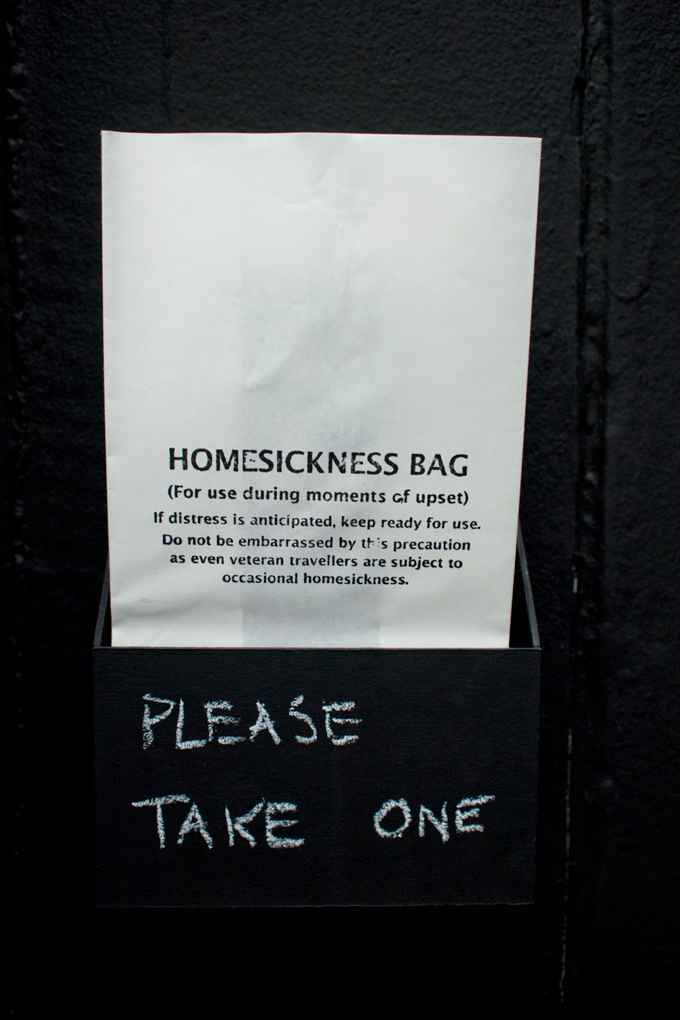 HOMESICKNESS BAG
(For use during moments of upset)
If distress is anticipated, keep ready for use.
Do not be embarrassed by this precaution
as even veteran travellers are subject to
occasional homesickness.
PLEASE
TAKE ONE